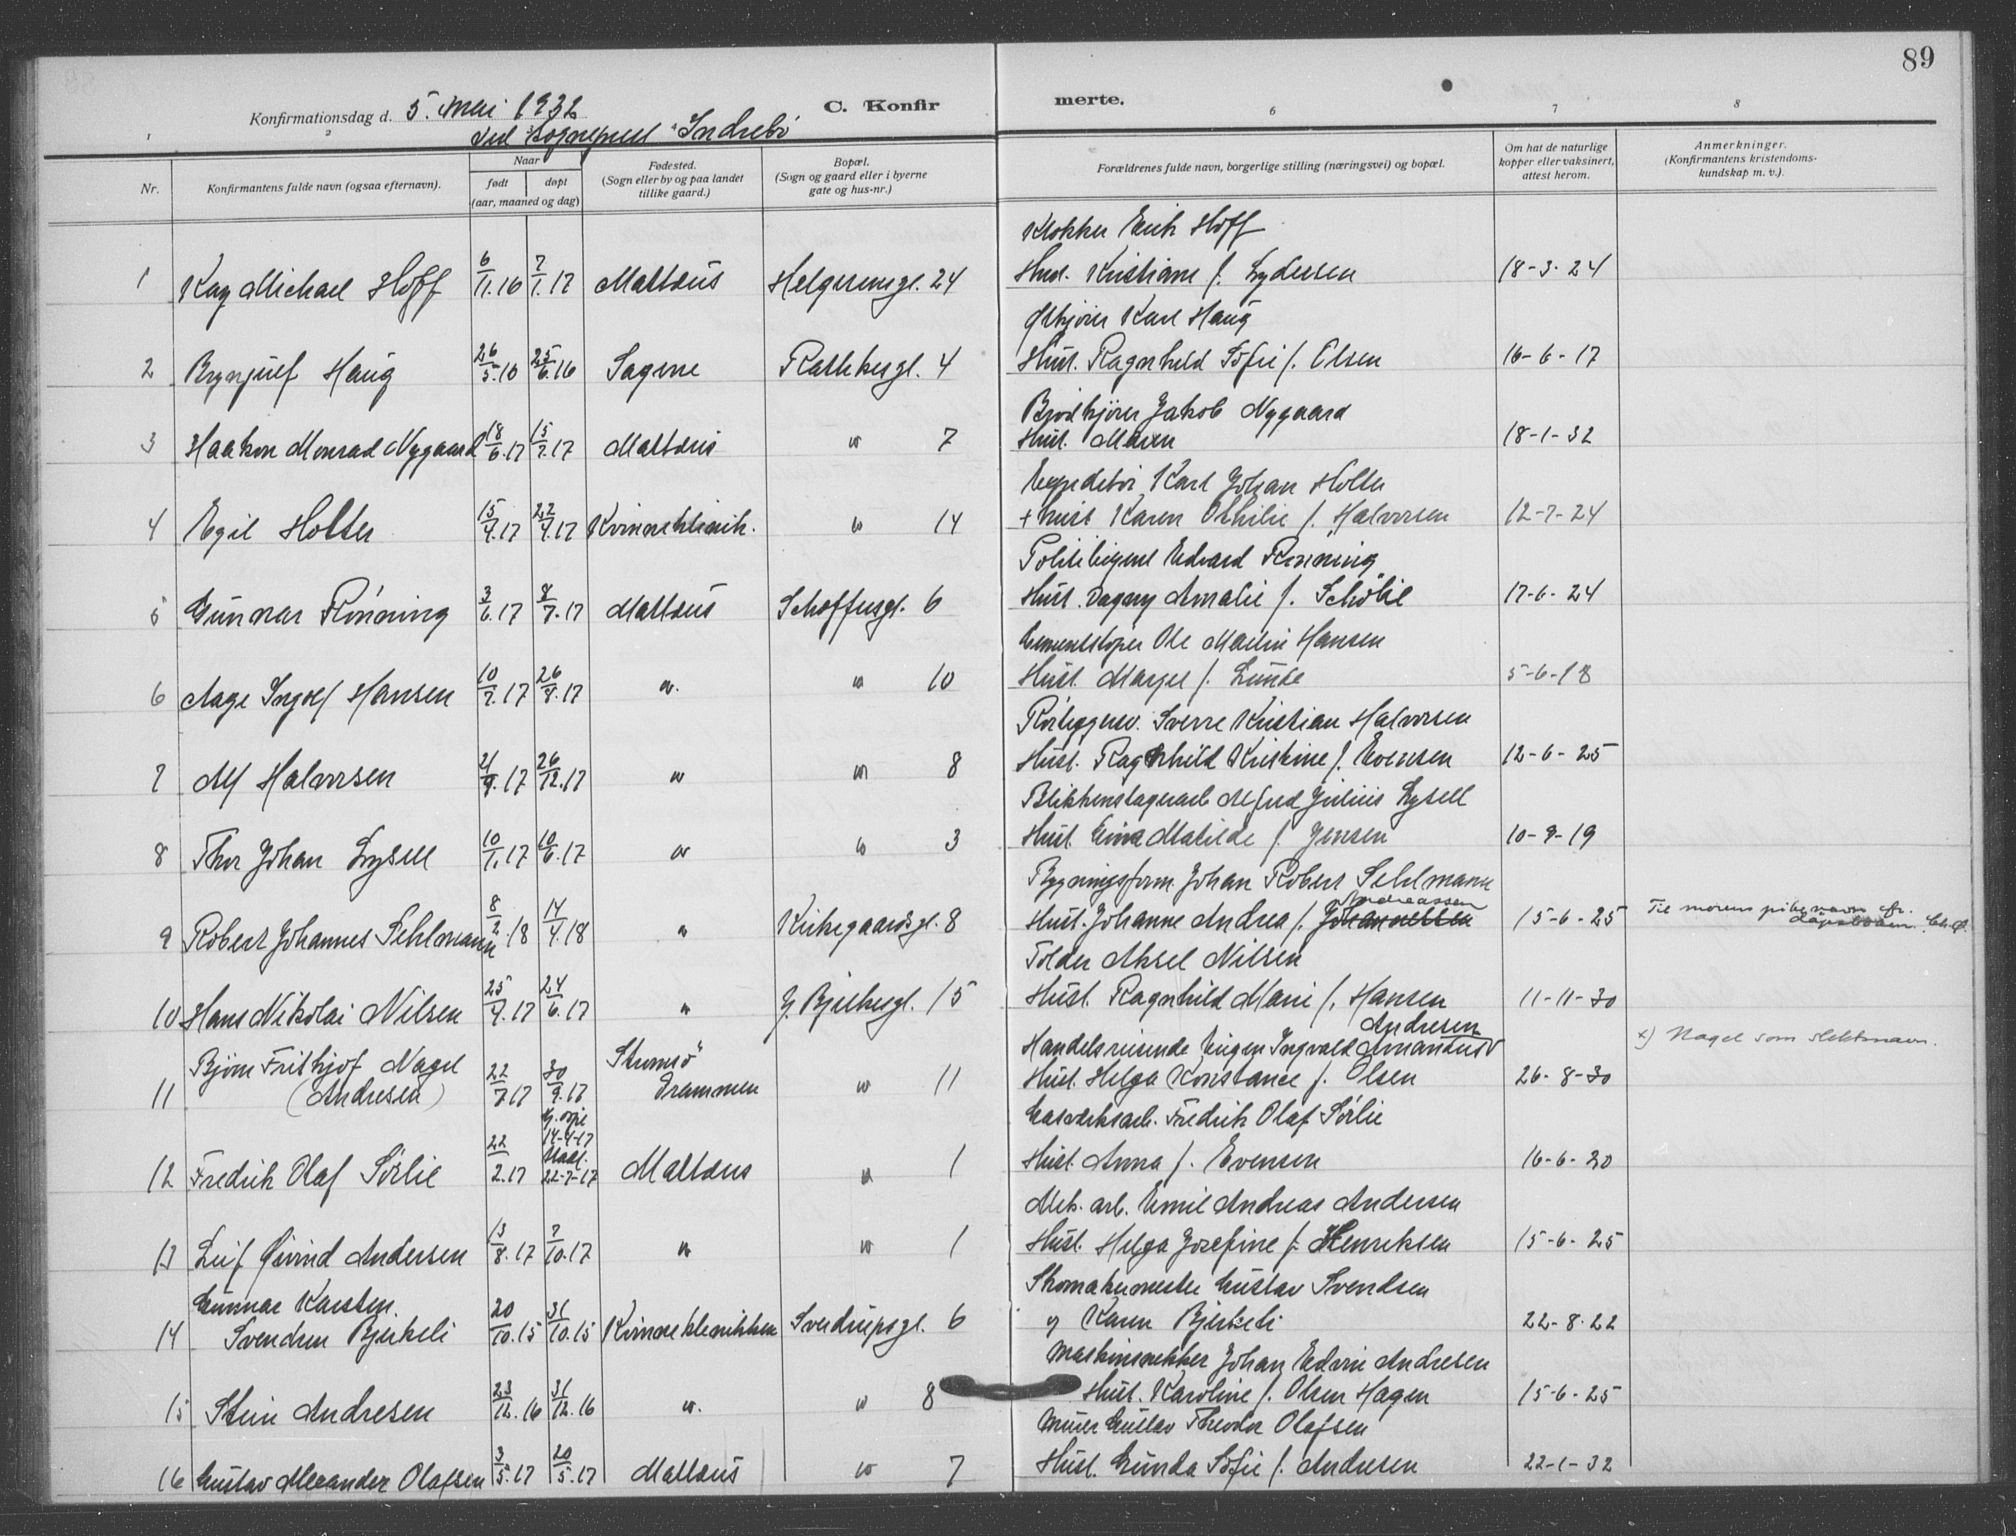 89
Konfirmationsdag d. 5. mai 1932 C. Konfirmerte.
ved sogneprest Indrebö
1 2 3 4 5 6 7 8
Nr. Konfirmantens fulde navn (ogsaa efternavn). Naar født døpt (aar, maaned og dag) Fødested. (Sogn eller by og paa landet tillike gaard.) Bopæl. (Sogn og gaard eller i byerne gate og hus-nr.) Forældrenes fulde navn, borgerlige stilling (næringsvei) og bopæl. Om hat de naturlige kopper eller vaksinert, attest herom. Anmerkninger. (Konfirmantens kristendoms-kundskap m. v.).
Klokker Erik Hoff
1 Kay Michael Hoff 6/11.16 7/1.17 Mattæus Helgesensgt. 24 Hust. Kristiane f. Lydersen 18-3-24
Karl Haug
2 Brynjulf Haug 26/5.16 25/6.16 Sagene Rathkesgt. 4 Hust. Ragnhild Sofie f. Olsen 16-6-17
Brödkjörer Jakob Nygaard
3 Haakon Monrad Nygaard 18/6.17 15/7.17 Mattæus " 7 Hust. Maren 18-1-32
Karl Johan Holter
4 Egil Holter 15/4.17 22/4.17 Kvinneklinik. " 14 + hust Karen Othilie f. Halvorsen 12-7-24
Edvard Rönning
5 Gunnar Rönning 3/6.17 8/7.17 Mattæus Schleppegt. 6 Hust. Dagny Amalie f. Schölie 17-6-24
Cementstöper Ole Martin Hansen
6 Aage Ingolf Hansen 10/7.17 26/8.17 " " 10 Hust. Margit f. Lunde 5-6-18
Sverre Kristian Halvorsen
7 Alf Halvorsen 21/9.17 26/12.17 " " 8 Hust. Ragnhild Kristine f. Evensen 12-6-25
Blikkenslagerarb Alfred Julius Lysell
8 Thor Johan Lysell 10/1.17 10/6.17 " " 3 Hust. Matilde f. Jensen 10-9-19
Bygningsform. Johan Robert Sehlmann
Andreassen
9 Robert Johannes Sehlmann 8/2.18 14/4.18 " Kirkegaardsgt. 8 Hust. Johanne Andrea f. Johannessen 15-6-25 Til morens pikenavn fr. dåpsboken.
Tolder Aksel Nilsen
10 Hans Nikolai Nilsen 25/4.17 24/6.17 " J. Bjelkesgt. 15 Hust. Ragnhild Marie f. Hansen 11-11-30
Andresen
Handelsreisende Eugen Ingvald Amandus x) Nagel som slektsnavn.
11 Björn Frithjof Nagel (Andresen) 22/7.17 30/9.17 Strømsö Drammen " 11 Hust. Helga Konstance f. Olsen 26-8-30
Gasverksarb. Fredrik Olaf Sörlie
12 Fredrik Olaf Sörlie 22/2.17 14-4-17 22-7-17 Mattæus " 1 Hust. Anna f. Evensen 16-6-30
Mek. arb. Emil Andreas Andersen
13 Leif Öivind Andersen 13/8.17 7/10.17 " " 1 Hust. Helga Josefine f. Henriksen 15-6-25
Skomakermester Gustav Svendsen
14 Gunnar Karsten Svendsen Bjerkeli 20/10.15 31/10.15 Kvinneklinikken Sverdrupsgt. 6 og Karen Bjerkeli 22-8-22
Maskinsnekker Johan Edvin Andresen
15 Stein Andresen 23/12.16 31/12.16 " " 8 Hust. Karoline f. Olsen Hagen 15-6-25
Murer Gustav Theodor Olafsen
16 Gustav Alexander Olafsen 3/5.17 20/5.17 Mattæus " 7 Hust. Gunda Sofie f. Andresen 22-1-32